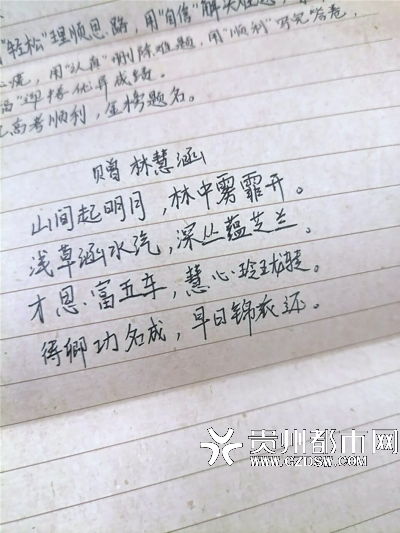 "轻松"理顺思路，用"自信"解决难题，
用"认真"删除难题，用"顺利"写完答卷，
迎接优异成绩。
高考顺利，金榜题名。
赠 林慧涵
山间起明月，林中雾霏开。
浅草涵水汽，深丛蕴芝兰。
才思富五车，慧心玲珑骁。
得卿功名成，早日锦衣还。
贵州都市网
WWW.GZDSW.COM